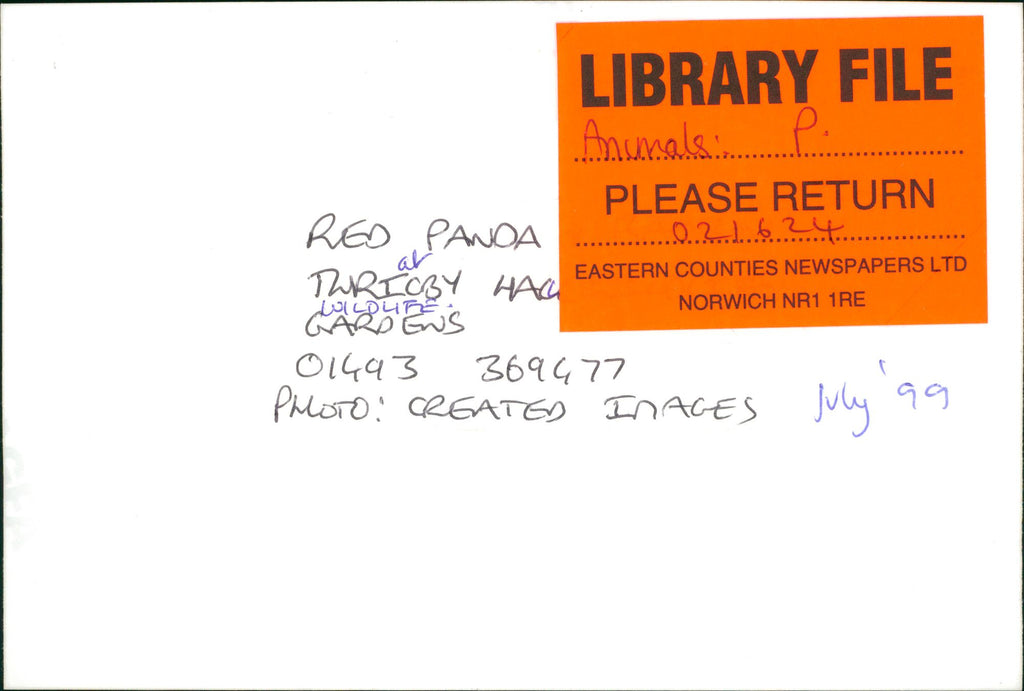 LIBRARY FILE
Animals: P.
PLEASE RETURN
021624
EASTERN COUNTIES NEWSPAPERS LTD
NORWICH NR1 1RE
RED PANDA
at
THRIGBY HALL
WILDLIFE
GARDENS
01493 369477
PHOTO: CREATED IMAGES
July '99